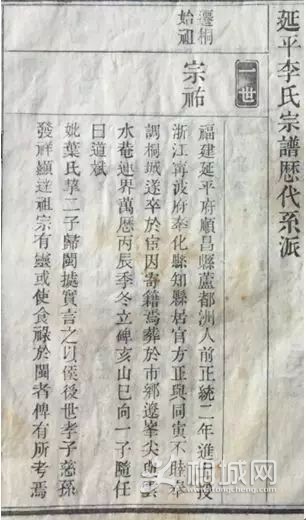 延平李氏宗譜歷代系派
一世
遷桐始祖
宗祐
福建延平府順昌縣蘆都洲人前正統二年進士授
浙江寧波府奉化縣知縣居官方正與同寅不睦奉
調桐城遂卒於宦因寄籍焉葬於市鄉遼峯尖
水菴連界萬歷丙辰季冬立碑亥山巳向一子隨任
曰道斌
妣葉氏攜二子歸閩據實言之以俟後世孝子慈孫
發祥顯達祖宗有靈或使食祿於閩者俾有所考焉
桐城网
tongcheng.com